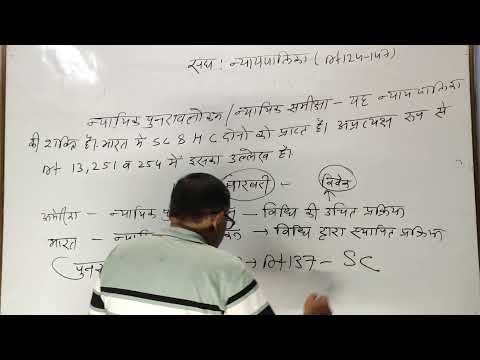 संघ : न्यायपालिका (At 124-147)
न्यायिक पुनरावलोकन / न्यायिक समीक्षा - यह न्यायपालिका
की शक्ति है। भारत में SC & HC दोनो को प्राप्त है। अप्रत्यक्ष रूप से
At 13, 251 व 254 में इसका उल्लेख है।
मारबरी - विवेक
अमेरिका - न्यायिक - विधि की उचित प्रक्रिया
भारत - → विधि द्वारा स्थापित प्रक्रिया
→ At 137 - SC